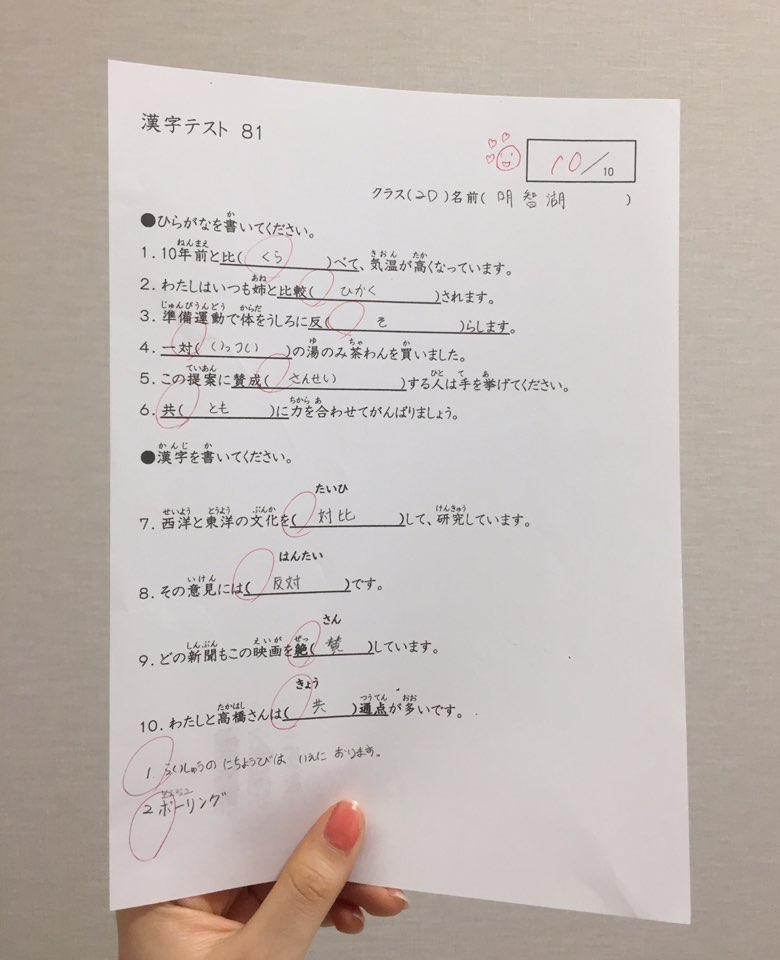 漢字テスト 81
10/10
クラス(2D)名前(明智湖)
●ひらがなを書いてください。
1.10年前と比(くら)べて、気温が高くなっています。
2.わたしはいつも姉と比較(ひかく)されます。
3.準備運動で体をうしろに反(そ)らします。
4.一対(いっつい)の湯のみ茶わんを買いました。
5.この提案に賛成(さんせい)する人は手を挙げてください。
6.共(とも)に力を合わせてがんばりましょう。
●漢字を書いてください。
たいひ
7.西洋と東洋の文化を(対比)して、研究しています。
はんたい
8.その意見には(反対)です。
さん
9.どの新聞もこの映画を絶(賛)しています。
きょう
10.わたしと高橋さんは(共)通点が多いです。
1. らいしゅうの にちようびは いえに おります。
2 ボーリング